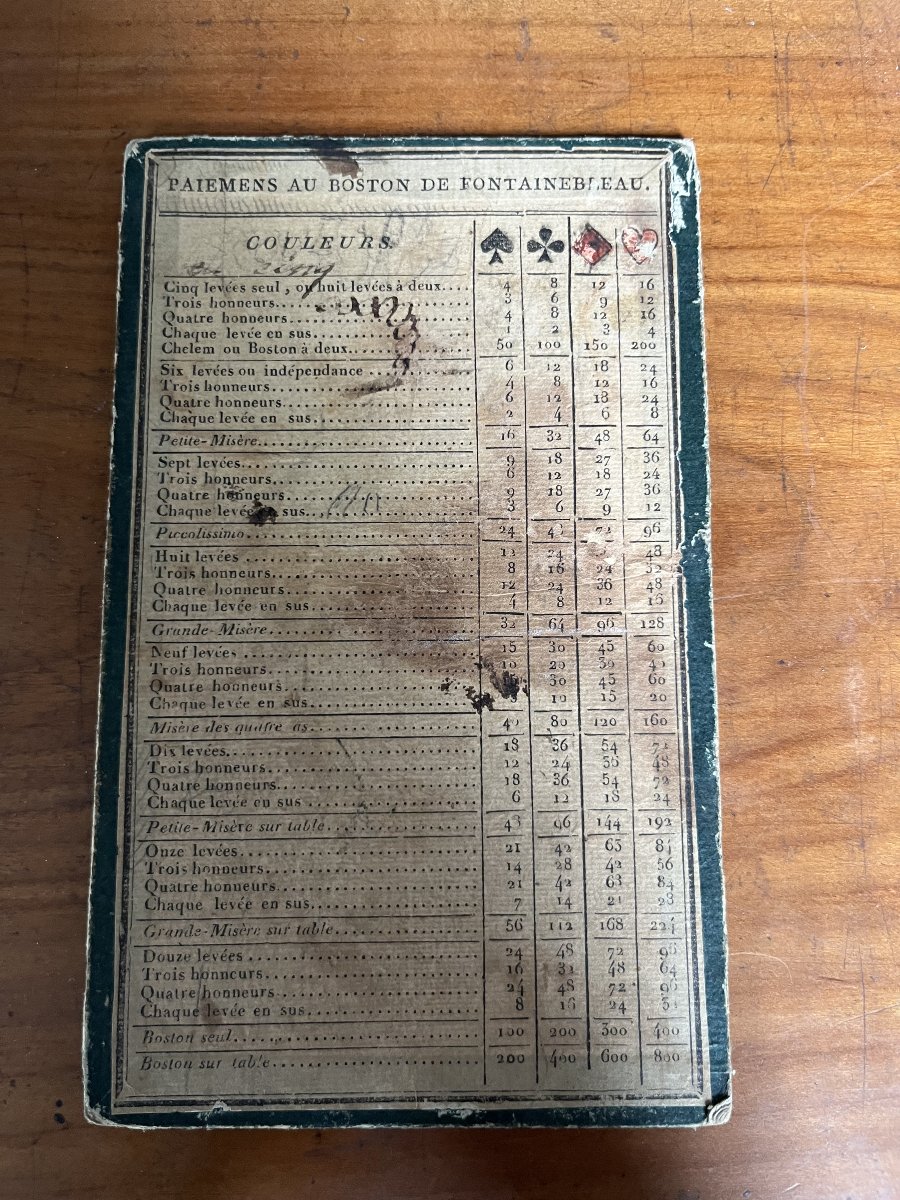 PAIEMENS AU BOSTON DE FONTAINEBLEAU.
COULEURS. ♠ ♣ ♦ ♥
en
Cinq levées seul, ou huit levées à deux.... 4 8 12 16
Trois honneurs... 3 6 9 12
Quatre honneurs... 4 8 12 16
Chaque levée en sus... 1 2 3 4
Chelem ou Boston à deux... 50 100 150 200
Six levées ou indépendance ... 6 12 18 24
Trois honneurs... 4 8 12 16
Quatre honneurs... 6 12 18 24
Chaque levée en sus... 2 4 6 8
Petite-Misère... 16 32 48 64
Sept levées... 9 18 27 36
Trois honneurs... 6 12 18 24
Quatre honneurs... 9 18 27 36
Chaque levée en sus... 3 6 9 12
Piccolissimo... 24 72 96
Huit levées ... 12 24 48
Trois honneurs... 8 16 24 32
Quatre honneurs... 12 24 36 48
Chaque levée en sus... 4 8 12 16
Grande-Misère... 32 64 96 128
Neuf levées ... 15 30 45 60
Trois honneurs... 10 20 30 40
Quatre honneurs... 30 45 60
Chaque levée en sus... 10 15 20
Misère des quatre as... 40 80 120 160
Dix levées... 18 36 54 72
Trois honneurs... 12 24 36 48
Quatre honneurs... 18 36 54 72
Chaque levée en sus ... 6 12 18 24
Petite-Misère sur table... 48 96 144 192
Onze levées... 21 42 63 84
Trois honneurs... 14 28 42 56
Quatre honneurs... 21 42 63 84
Chaque levée en sus... 7 14 21 28
Grande-Misère sur table... 56 112 168 224
Douze levées ... 24 48 72 96
Trois honneurs... 16 32 48 64
Quatre honneurs... 24 48 72 96
Chaque levée en sus... 8 16 24 32
Boston seul... 100 200 300 400
Boston sur table... 200 400 600 800